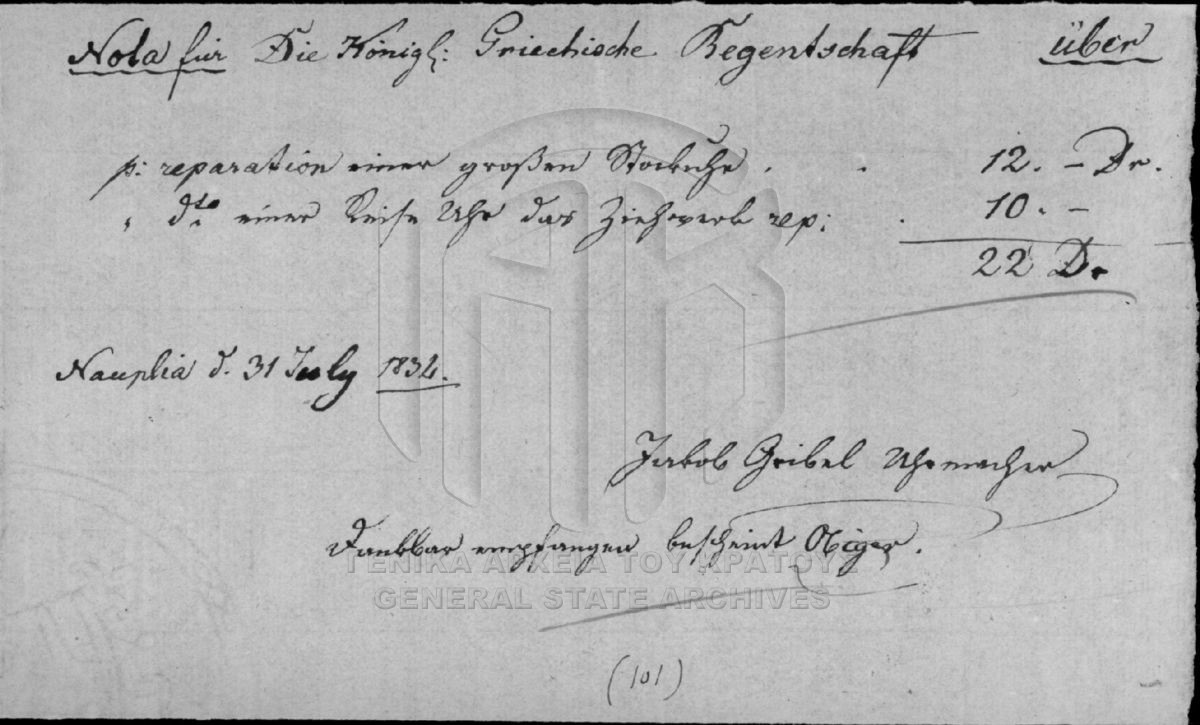 Nota für Die Königl: Griechische Regentschaft über
p: reparation einer großen Stockuhr . . 12. – Dr.
„ dto einer Reise Uhr das Ziehwerk rep: . 10. –
22 Dr
Nauplia d. 31 July 1834.
Jakob Geibel Uhrmacher
Dankbar empfangen bescheint Obiger.
ΓΕΝΙΚΑ ΑΡΧΕΙΑ ΤΟΥ ΚΡΑΤΟΥΣ
GENERAL STATE ARCHIVES
(101)